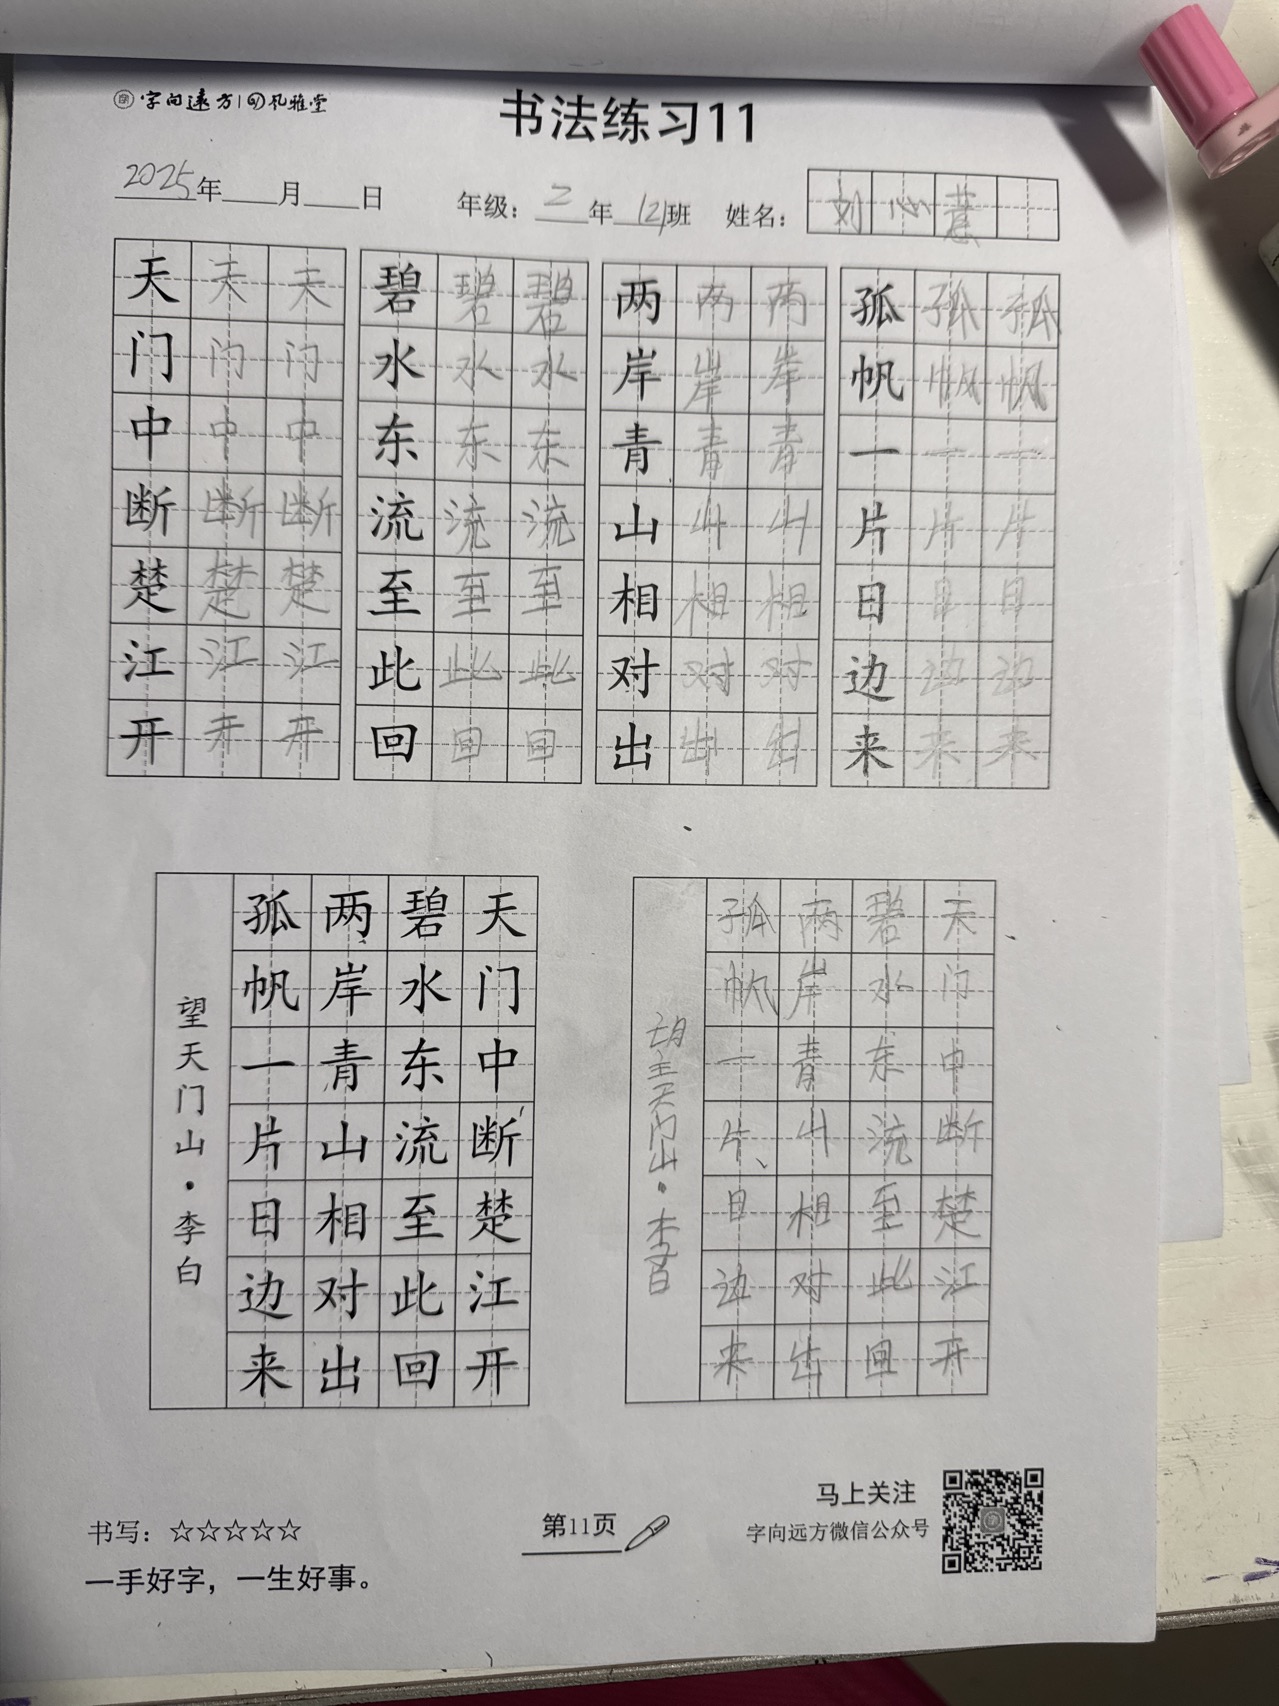 字向远方 凤雅堂
书法练习11
2025年 月 日 年级：二年12班 姓名：刘心薏
天天天 碧碧碧 两两两 孤孤孤
门门门 水水水 岸岸岸 帆帆帆
中中中 东东东 青青青 一一一
断断断 流流流 山山山 片片片
楚楚楚 至至至 相相相 日日日
江江江 此此此 对对对 边边边
开开开 回回回 出出出 来来来
天门中断楚江开
碧水东流至此回
两岸青山相对出
孤帆一片日边来
望天门山·李白
天门中断楚江开
碧水东流至此回
两岸青山相对出
孤帆一片日边来
望天门山·李白
书写：☆☆☆☆☆
一手好字，一生好事。
第11页
马上关注
字向远方微信公众号